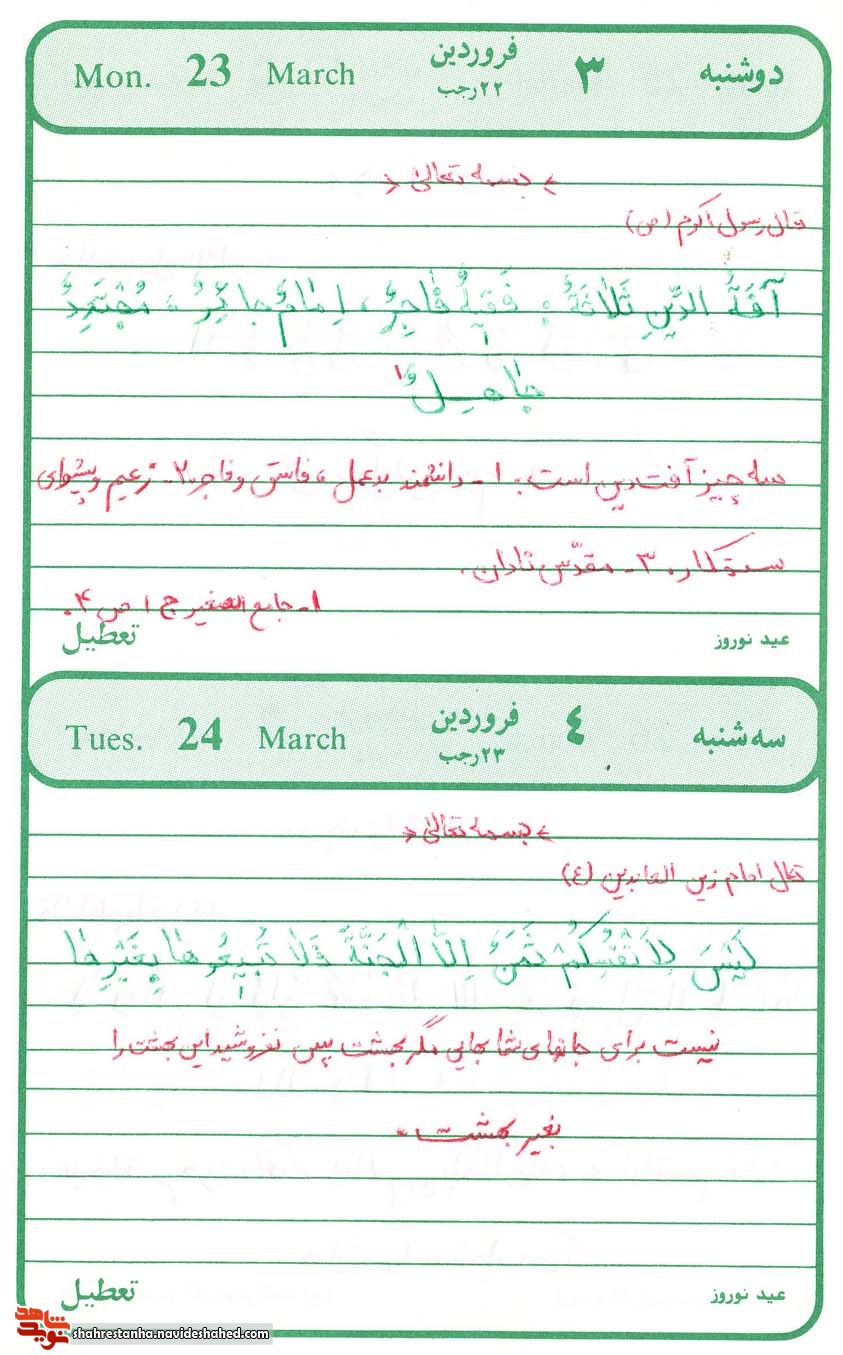 دوشنبه ۳ فروردین ۲۲ رجب Mon. 23 March
> بسمه تعالیٰ <
قال رسول اکرم (ص)
آفَةُ الدّینِ ثَلاثَةٌ: فَقیهٌ فاجِرٌ، اِمامٌ جائِرٌ، مُجْتَهِدٌ
جاهِلٌ ۱
سه چیز آفت دین است: ۱- دانشمند بدعمل، فاسق و فاجر. ۲- زعیم و پیشوای
ستمکار. ۳- مقدّس نادان.
۱- جامع الصغیر ج ۱ ص ۴.
عید نوروز تعطیل
سه شنبه ٤ فروردین ۲۳ رجب Tues. 24 March
> بسمه تعالیٰ <
قال امام زین العابدین (ع)
لَیْسَ لِاَنْفُسِکُمْ ثَمَنٌ اِلاَّ الْجَنَّةَ فَلا تَبیعُوها بِغَیْرِها
نیست برای جانهای شما بهایی مگر بهشت پس نفروشید این بهشت را
بغیر بهشت.
عید نوروز تعطیل
نوید شاهد shahrestanha.navideshahed.com